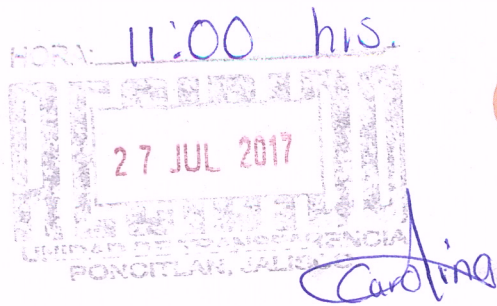 HORA: 11:00 hrs.
27 JUL 2017
UNIDAD DE TRANSPARENCIA
PONCITLAN, JALISCO
Carolina